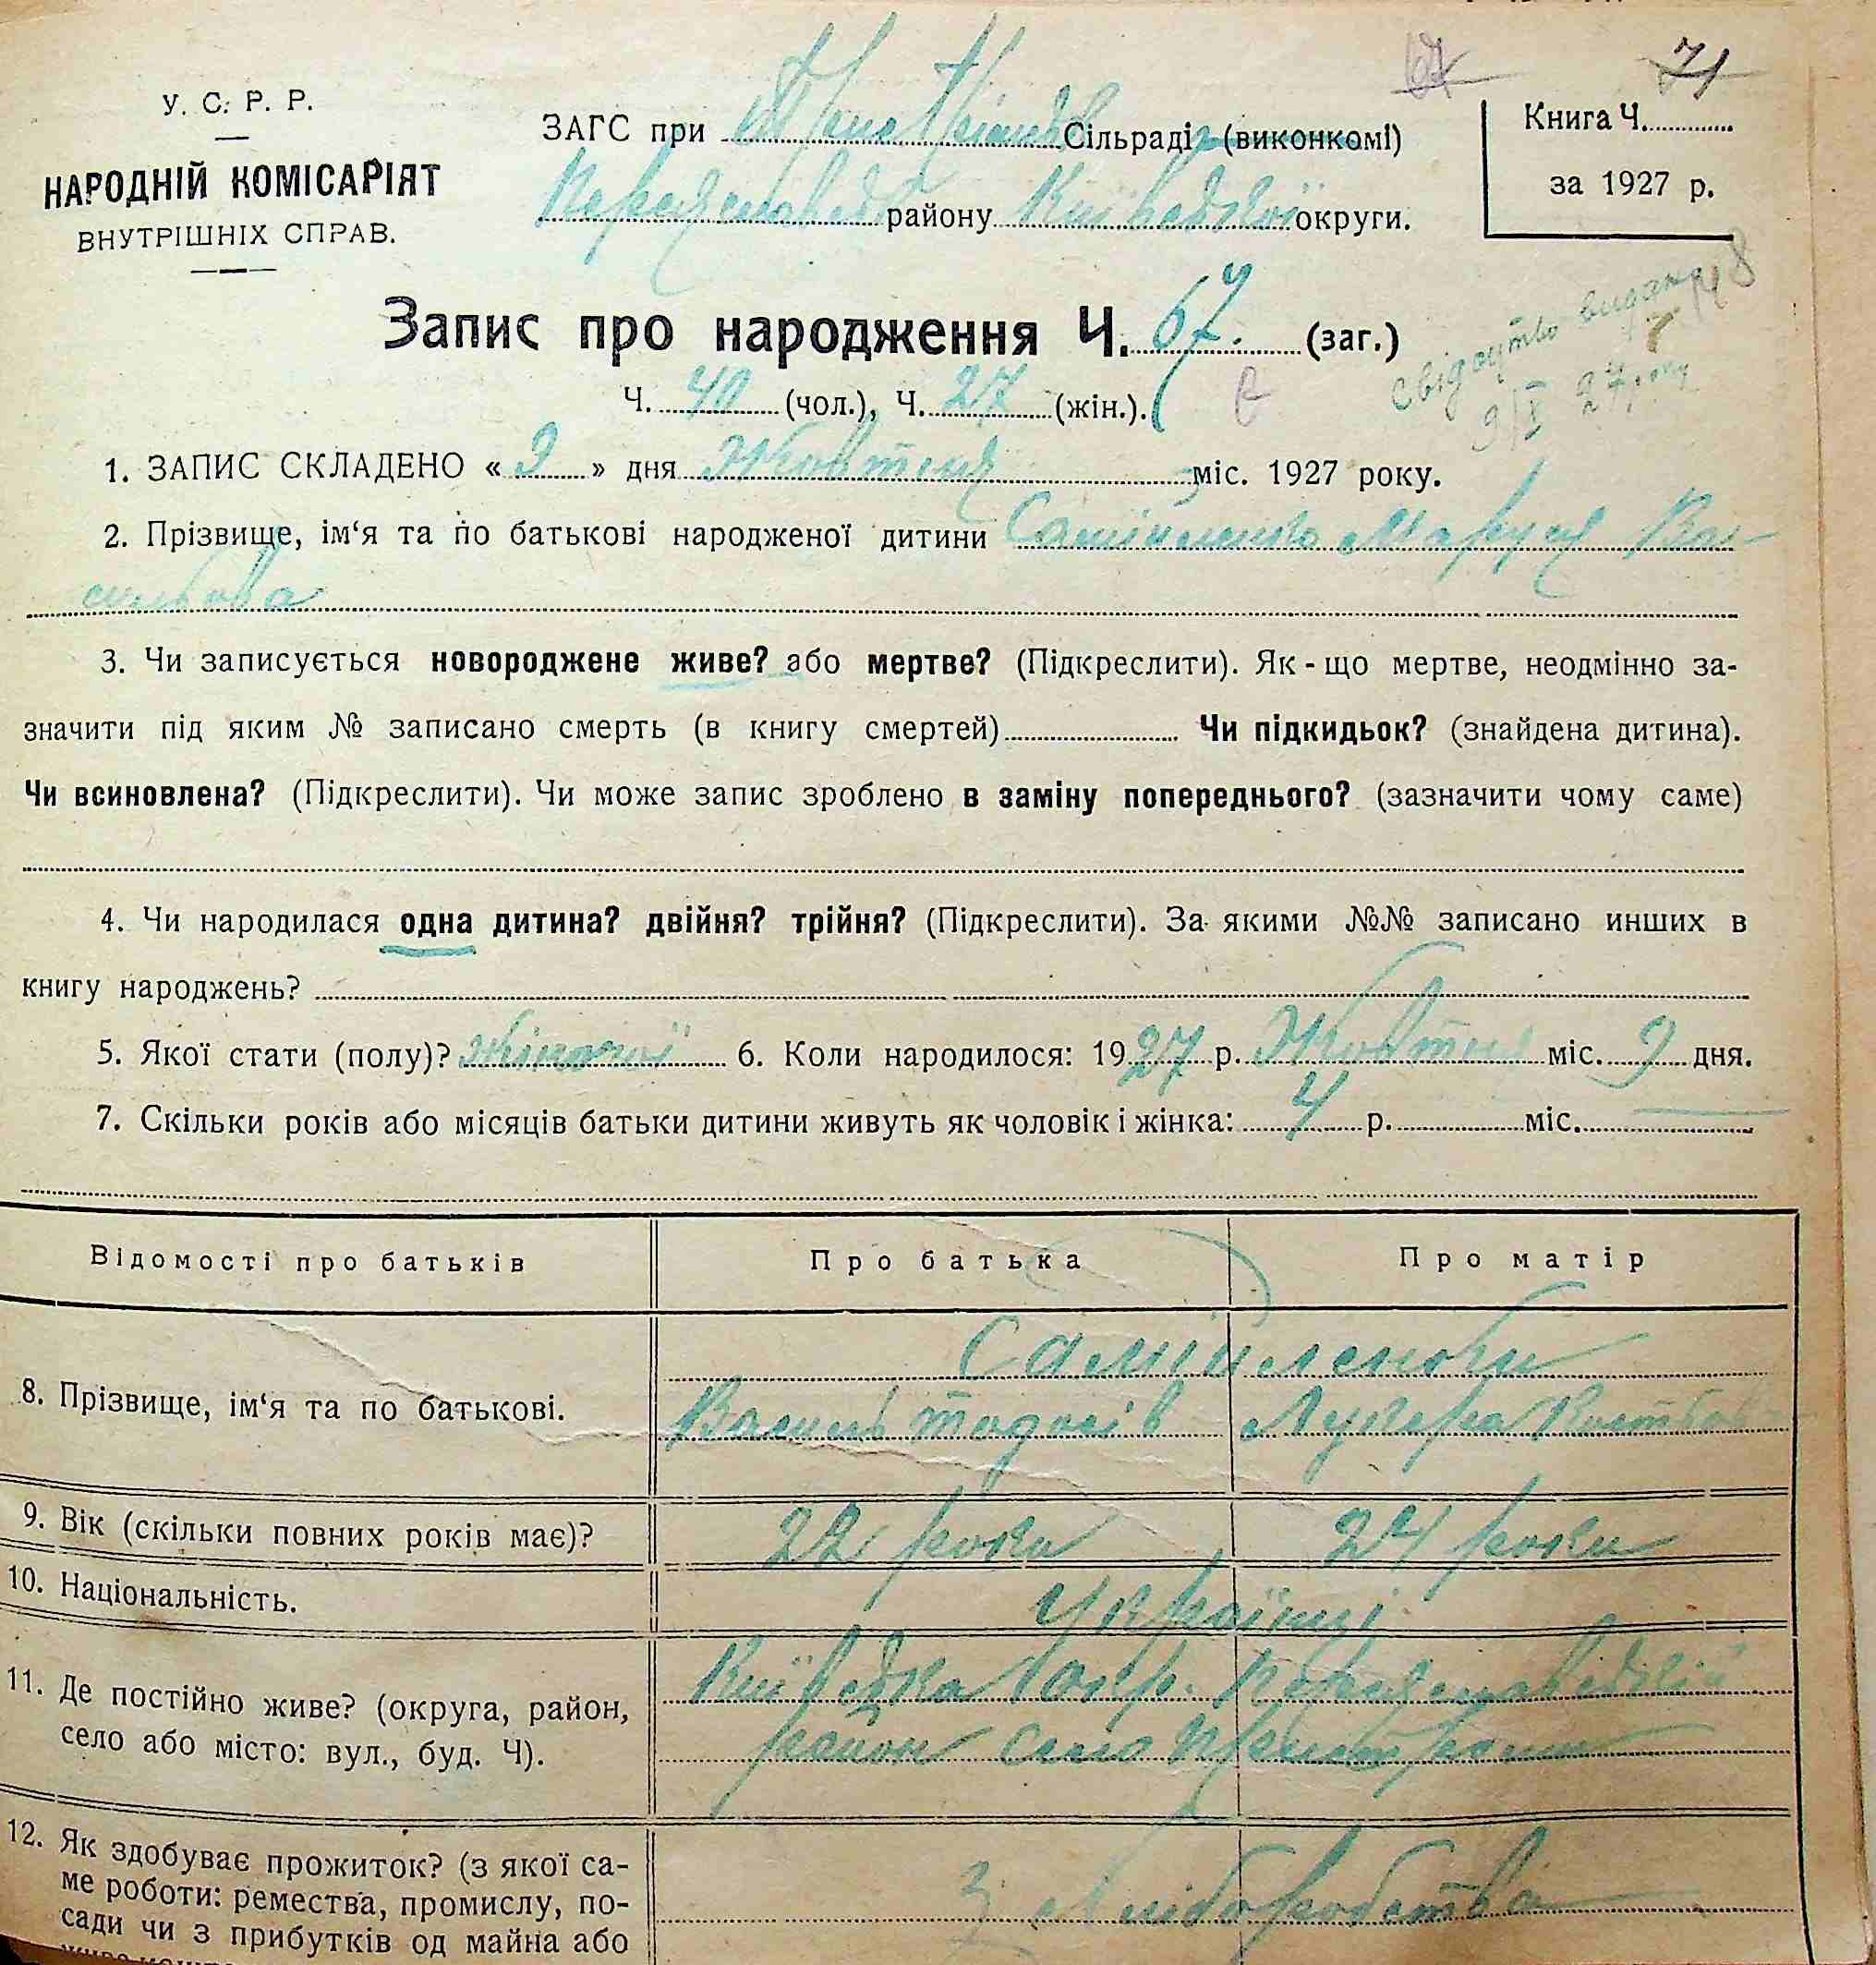 67 71
У. С. Р. Р.
НАРОДНІЙ КОМІСАРІЯТ
ВНУТРІШНІХ СПРАВ.
ЗАГС при Сільраді (виконкомі)
району Київської округи.
Книга Ч.
за 1927 р.
Запис про народження Ч. 67. (заг.)
Ч. 40 (чол.), Ч. 27 (жін.).
свідоцтво видан
9/X 27 року
1. ЗАПИС СКЛАДЕНО « 9 » дня Жовтня міс. 1927 року.
2. Прізвище, ім‘я та по батькові народженої дитини Самійленко Маруся Ва-
сильова
3. Чи записується новороджене живе? або мертве? (Підкреслити). Як-що мертве, неодмінно за-
значити під яким № записано смерть (в книгу смертей) Чи підкидьок? (знайдена дитина).
Чи всиновлена? (Підкреслити). Чи може запис зроблено в заміну попереднього? (зазначити чому саме)
4. Чи народилася одна дитина? двійня? трійня? (Підкреслити). За якими №№ записано инших в
книгу народжень?
5. Якої стати (полу)? Жіночої 6. Коли народилося: 1927 р. Жовтня міс. 9 дня.
7. Скільки років або місяців батьки дитини живуть як чоловік і жінка: 4 р. міс.
Відомості про батьків Про батька Про матір
8. Прізвище, ім‘я та по батькові. Самійленки
Василь Тодосів
9. Вік (скільки повних років має)? 22 роки 24 роки
10. Національність. Українці
11. Де постійно живе? (округа, район,
село або місто: вул., буд. Ч).
Київська окр. Переяславський
район село Пристроми
12. Як здобуває прожиток? (з якої са-
ме роботи: ремества, промислу, по-
сади чи з прибутків од майна або
З Хліборобства